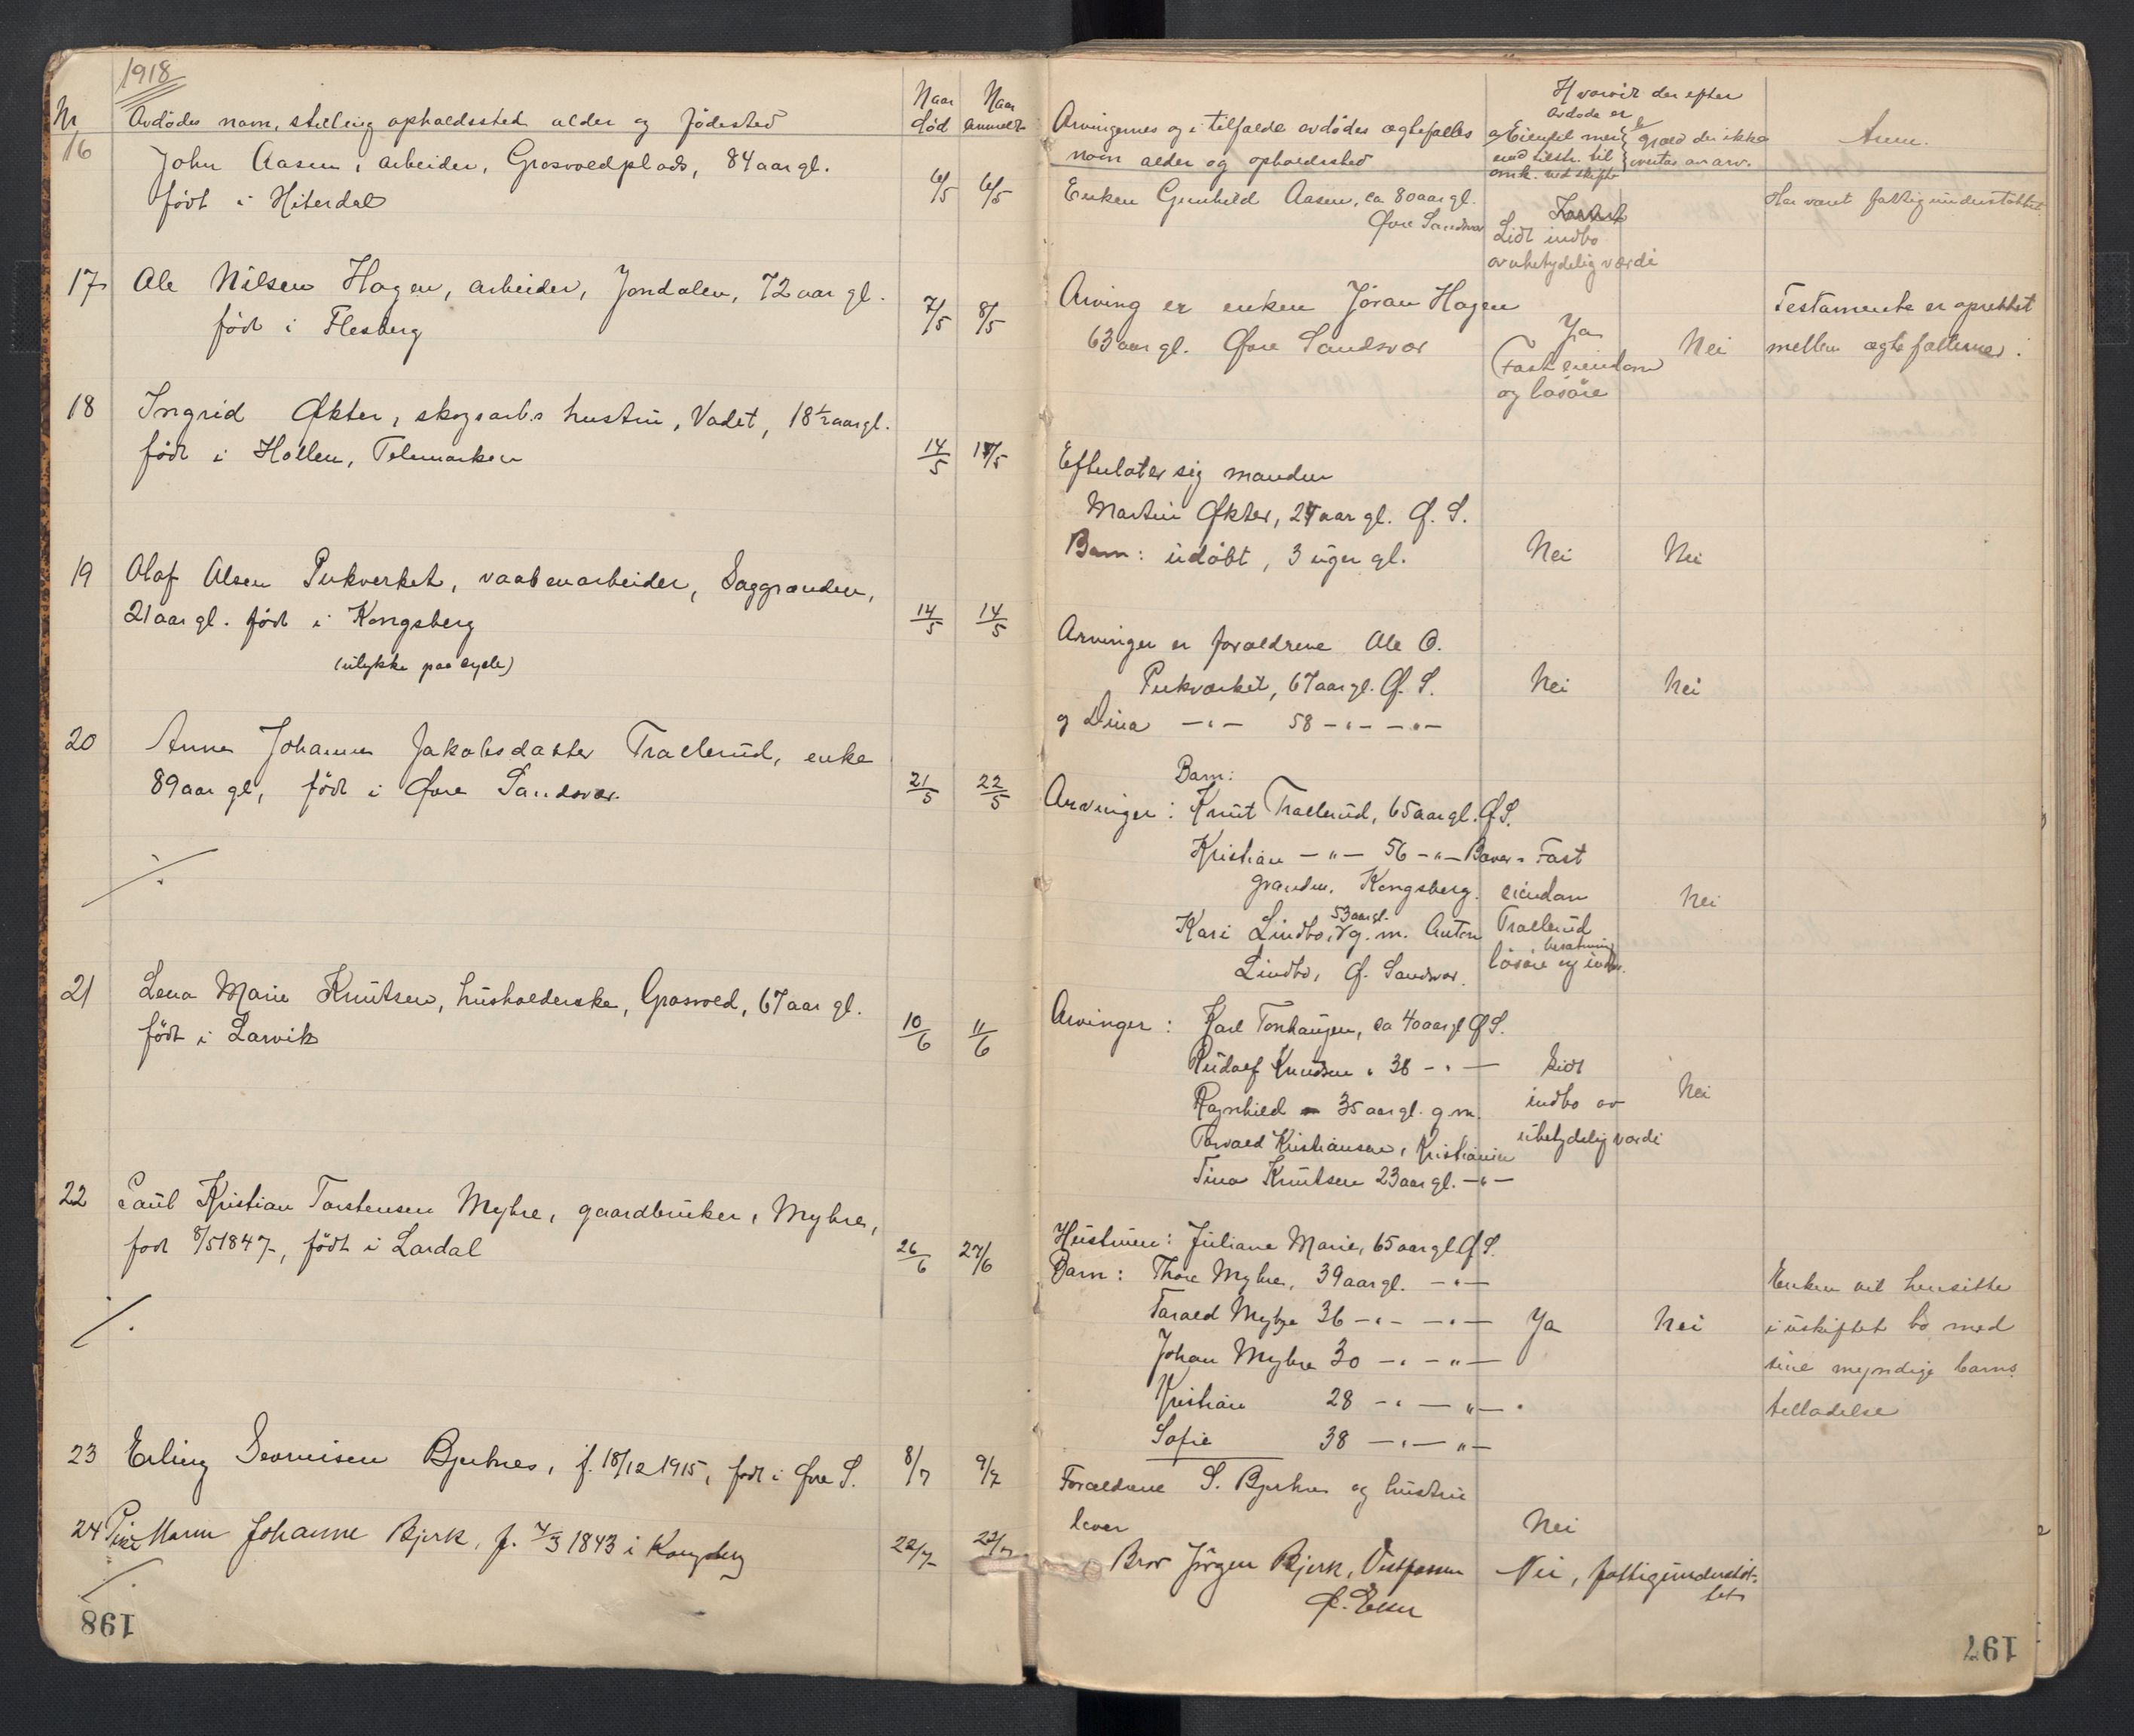 1918
Nr
Avdödes navn, stilling opholdssted alder og födested
Naar död
Naar anmeldt
16
John Aasen, arbeider, Grosvoldplads, 84 aar gl.
födt i Hiterdal
6/5 6/5
17 Ole Nilsen Hagen, arbeider, Jondalen, 72 aar gl.
födt i Flesberg
7/5 8/5
18 Ingrid Økter, skogsarb.s hustru, Vadet, 18 1/2 aar gl.
födt i Hollen, Telemarken
14/5 17/5
19 Olaf Olsen Pukverket, vaabenarbeider, Saggrenden,
21 aar gl. födt i Kongsberg
14/5 14/5
(ulykke paa cycle)
20 Anne Johanne Jakobsdatter Traelerud, enke
89 aar gl, födt i Øvre Sandsvær.
21/5 22/5
21 Lena Marie Knutsen, husholderske, Grosvold, 67 aar gl.
födt i Larvik
10/6 11/6
22 Paul Kristian Torstensen Myhre, gaardbruker, Myhre,
född 8/5 1847, födt i Lardal
26/6 27/6
23 Erling Bjerknes, f. 18/12 1915, född i Øvre S. 8/7 9/7
24 Pike Maren Johanne Bjerk, f. 7/3 1843 i Kongsberg 22/7 22/7
198
Arvingernes og i tilfælde avdödes ægtefælles
navn alder og opholdssted
Hvorvidt der efter
avdöde er
Anm.
Enken Gunhild Aasen, ca 80 aar gl.
Øvre Sandsvær
Lidt indbo
av ubetydelig værdi
Har været fattigunderstöttet
Arving er enken Jöran Hagen
63 aar gl. Øvre Sandsvær
Ja
Fast eiendom
og lösöre
Nei
Testamente er oprettet
mellem ægtefællerne.
Efterlater sig manden
Martin Økter, 24 aar gl. Ø. S.
Barn: udöbt, 3 uger gl. Nei Nei
Arvinger er forældrene Ole O.
Pukverket, 67 aar gl. Ø. S. Nei Nei
og Dina — " — 58 — " — — " —
Barn:
Arvinger: Knut Traelerud, 65 aar gl. Ø.S.
Kristian — " — 56 — " — Baver- Fast
grenden, Kongsberg. eiendom Nei
Kari Lindbo, 53 aar gl. g. m. Anton Traelerud
Lindbo, Ø. Sandsvær. lösöre besætning og indbo.
Arvinger: Karl Torhaugen, ca 40 aar gl Ø S.
Rudolf Knudsen " 38 — " — Lidt
Ragnhild 35 aar gl. g m. indbo av Nei
Torvald Kristiansen, Kristiania ubetydelig værdi
Tina Knutsen 23 aar gl. — " —
Hustruen: Juliane Marie, 65 aar gl Ø S.
Barn: Thore Myhre, 39 aar gl. — " —
Tarald Myhre 36 — " — — " — Ja Nei
Johan Myhre 30 — " — " —
Kristian 28 — " — " — "
Sofie 38 — " — " —
Enken vil hensitte
i uskiftet bo med
sine myndige barns
tilladelse
Forældrene S. Bjerknes og hustru
lever Nei
Bror Jörgen Bjerk, Vestfossen Nei, fattigunderstöt-
Ø. Eker tet
197